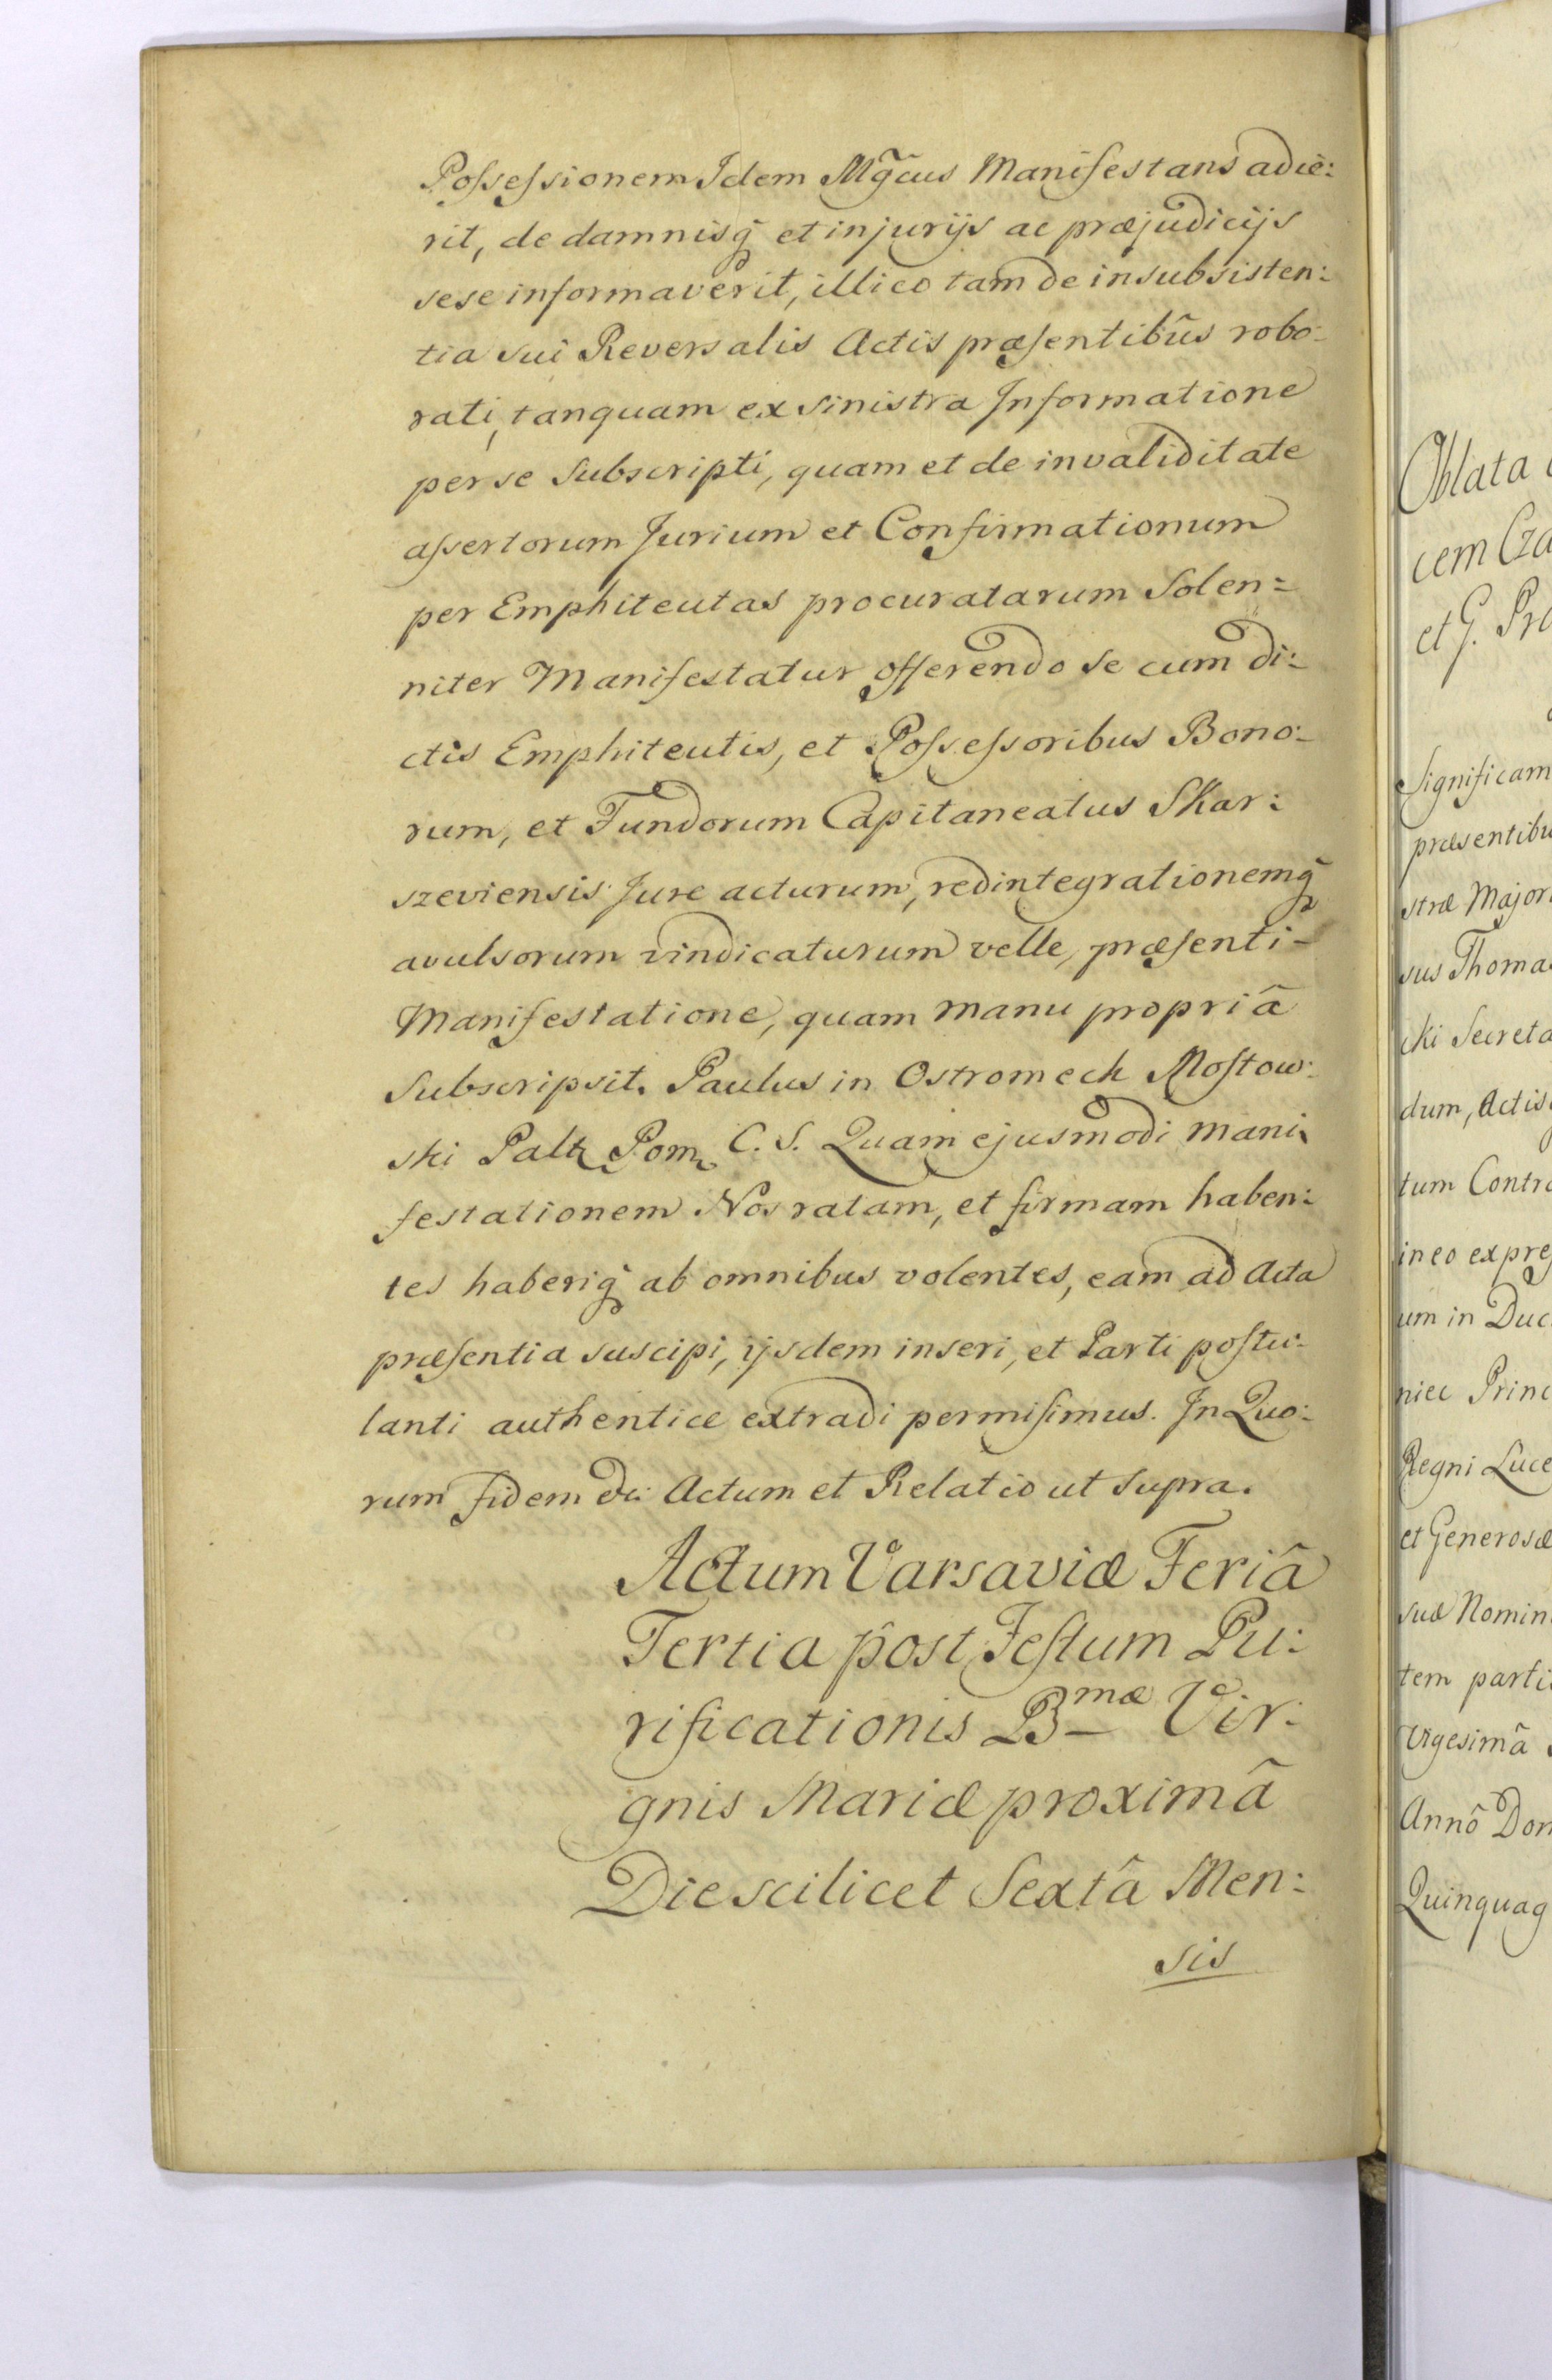 Possessionem Idem Mg̃cus Manifestans adie:
rit, de damnisq̃ et injurijs ac præjudicijs
sese informaverit, illico tam de insubsisten:
tia sui Reversalis Actis præsentibûs robo:
rati, tanquam ex sinistra Informatione
per se Subscripti, quam et de invaliditate
assertorum Jurium et Confirmationum
per Emphiteutas procuratarum Solen=
niter Manifestatur offerendo se cum di:
ctis Emphiteutis, et Possessoribus Bono:
rum, et Fundorum Capitaneatus Skar:
szeviensis Jure acturum, redintegrationemq̃
avulsorum vindicaturum velle, præsenti-
Manifestatione, quam manu propriâ
Subscripsit. Paulus in Ostromech Mostow:
ski Paltz Pom. C. S. Quam ejusmodi Mani:
festationem Nos ratam, et firmam haben:
tes haberiq̃ ab omnibus volentes, eam ad Acta
præsentia suscipi, ijsdem inseri, et Parti postu:
lanti authentice extradi permisimus. In Quo:
rum fidem &c: Actum et Relatio ut Supra.
Actum Varsaviæ Feriâ
Tertia post Festum Pu:
rificationis B<sup>mæ</sup> Vir:
gnis Mariæ proximâ
Die scilicet Sextâ Men:
sis
Oblata
cem Cza
et G. Pro
Significam
præsentibu
stræ Major
sus Thoma
cki Secreta
dum, Actis
tum Contra
in eo expres
um in Duc
niec Princ
Regni Luce
et Generosæ
suæ Nomin
tem parti
Vigesimâ
Annô Dom
Quinquag